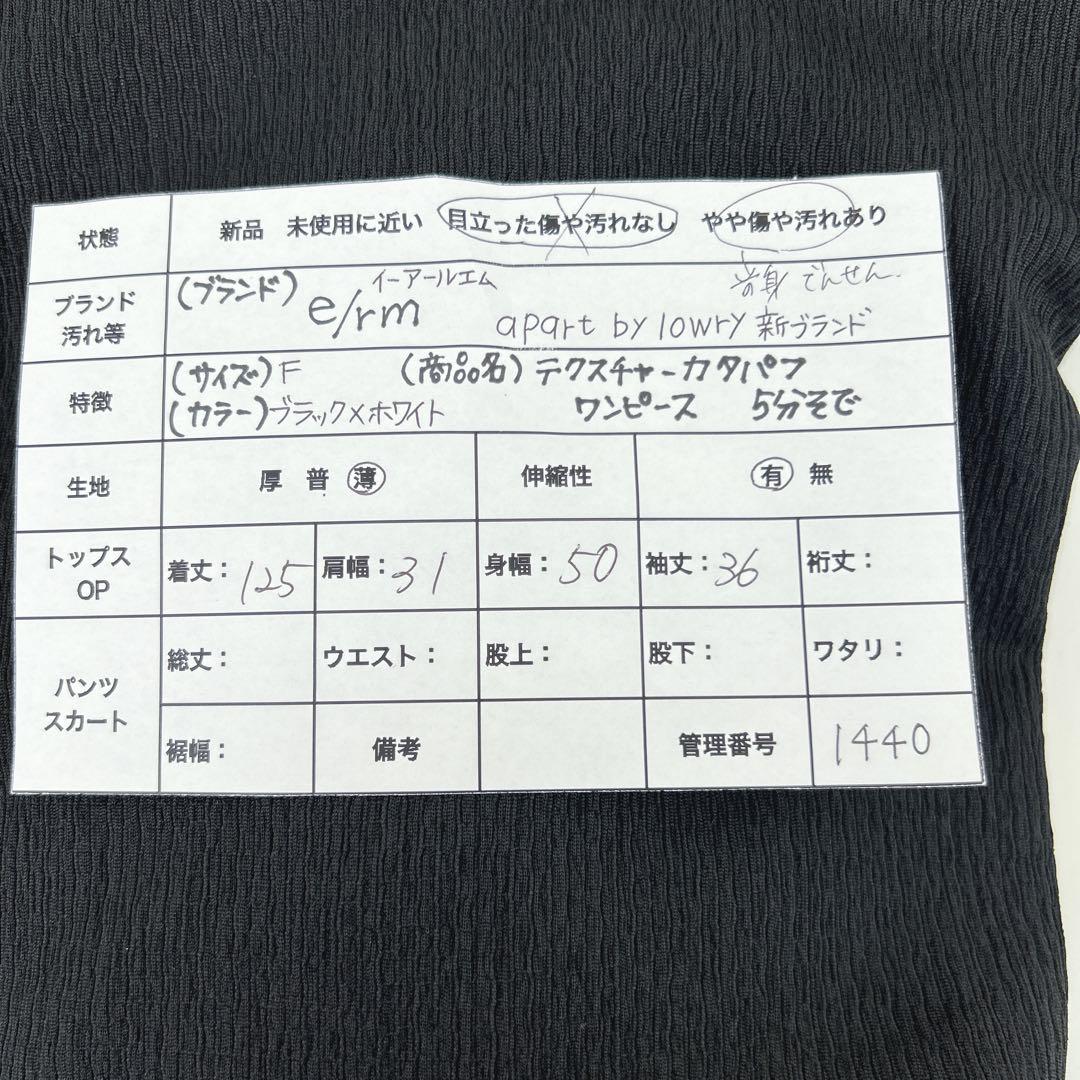 状態 新品 未使用に近い 目立った傷や汚れなし やや傷や汚れあり
ブランド 汚れ等 (ブランド) e/rm イーアールエム でんせん
apart by lowry 新ブランド
特徴 (サイズ) F (商品名) テクスチャーカタパフ
(カラー) ブラック×ホワイト ワンピース 5分そで
生地 厚 普 薄 伸縮性 有 無
トップス OP 着丈: 125 肩幅: 31 身幅: 50 袖丈: 36 裄丈:
パンツ スカート 総丈: ウエスト: 股上: 股下: ワタリ:
裾幅: 備考 管理番号 1440